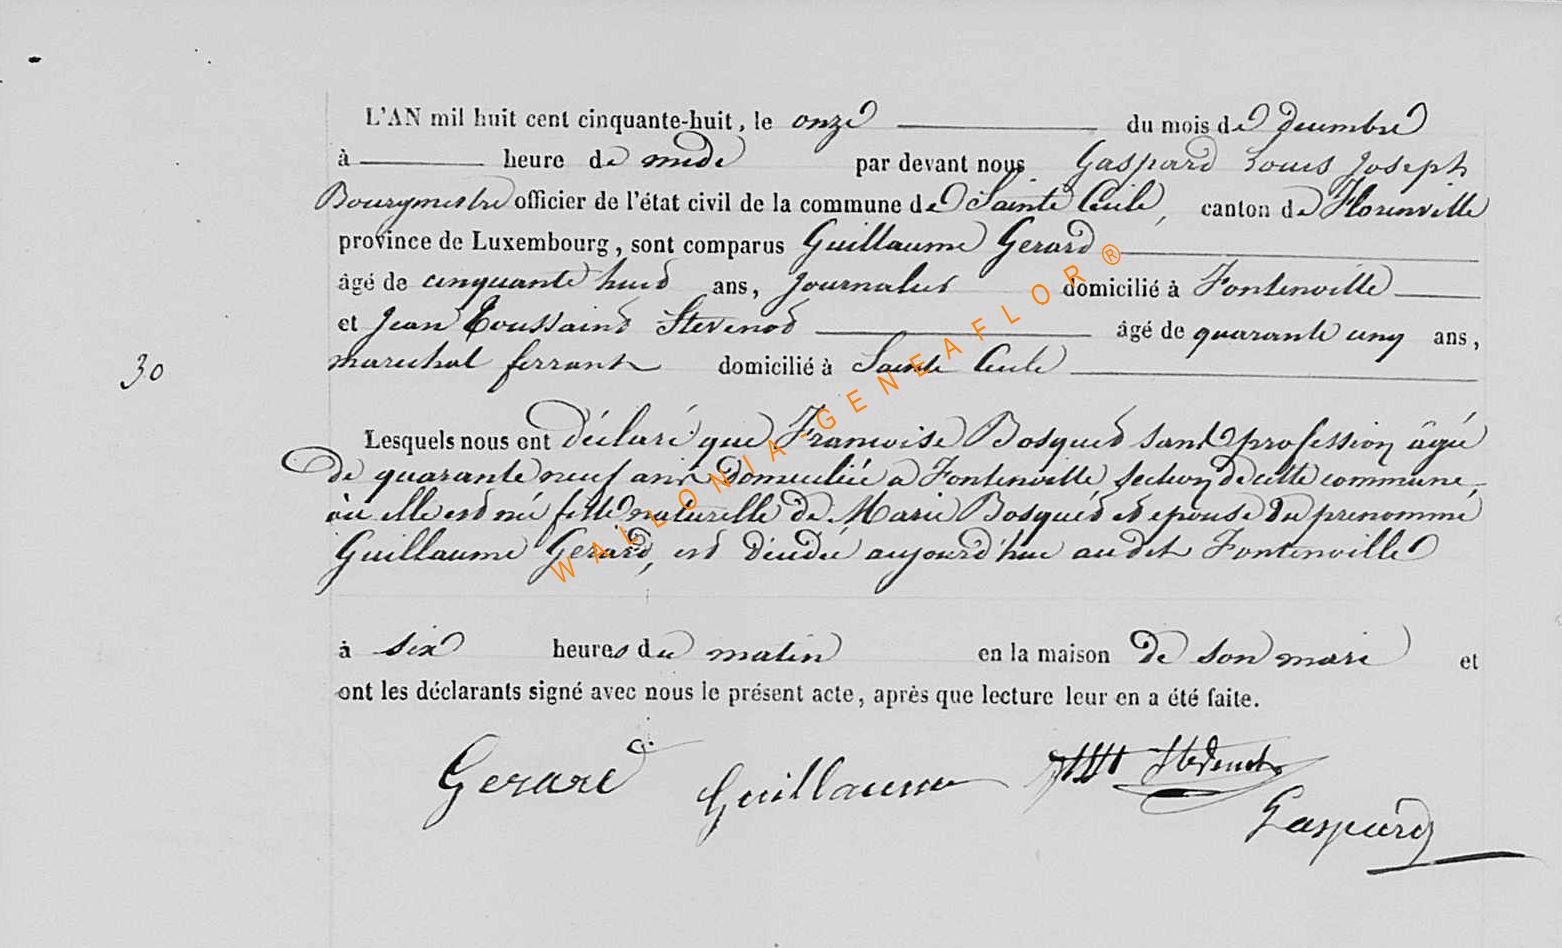 L'AN mil huit cent cinquante-huit, le onze du mois de decembre
à heure de midi par devant nous Gaspard Louis Joseph
Bourgmestre officier de l'état civil de la commune de Sainte Cécile, canton de Florenville
province de Luxembourg, sont comparus Guillaume Gerard
âgé de cinquante huit ans, journalier domicilié à Fontenoille
et Jean Toussaint Stevenot âgé de quarante cinq ans,
30
marechal ferrant domicilié à Sainte Cécile
Lesquels nous ont déclaré que Francoise Bosquet sans profession âgée
de quarante neuf ans domiciliée a Fontenoille section de cette commune
où elle est né fille naturelle de Marie Bosquet et epouse du prenommé
Guillaume Gerard, est décédée aujourd'hui au dit Fontenoille
à six heures du matin en la maison de son mari et
ont les déclarants signé avec nous le présent acte, après que lecture leur en a été faite.
Gerard Guillaume Stevenot
Gaspard
WALLONIA-GENEAFLOR®